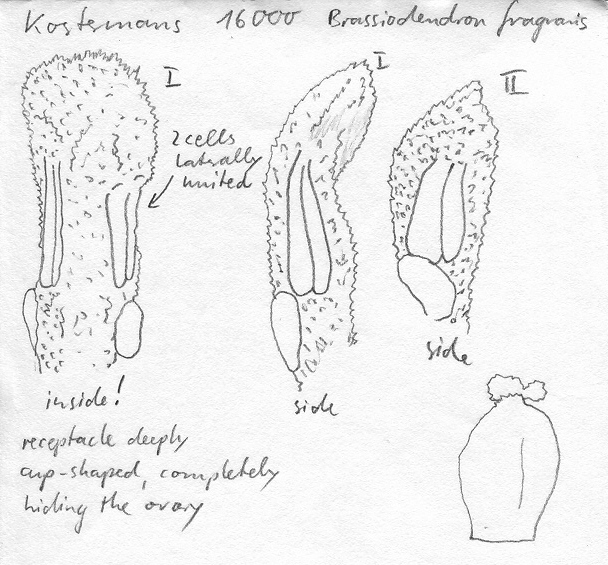 Kostermans 16000 Brassiodendron fragrans
I
I
II
2 cells
laterally
united
inside!
side
side
receptacle deeply
cup-shaped, completely
hiding the ovary